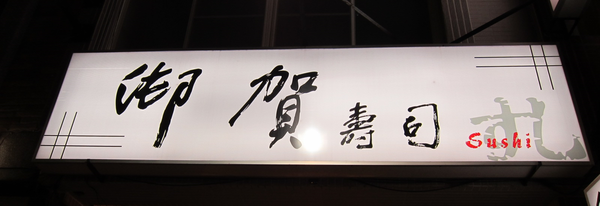 御賀壽司
Sushi